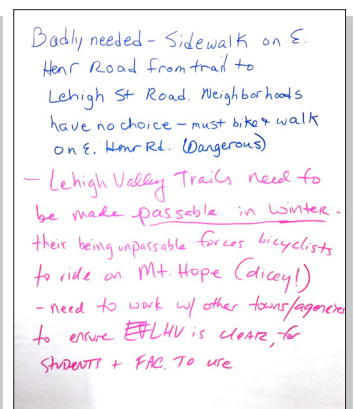 Badly needed - Sidewalk on E.
Henr Road from trail to
Lehigh St Road. Neighborhoods
have no choice - must bike & walk
on E. Henr Rd. (Dangerous)
- Lehigh Valley Trails need to
be made passable in winter -
their being unpassable forces bicyclists
to ride on Mt. Hope (dicey!)
- need to work w/ other towns/agencies
to ensure LHV is cleAR, for
STUDENTS + FAC. TO use